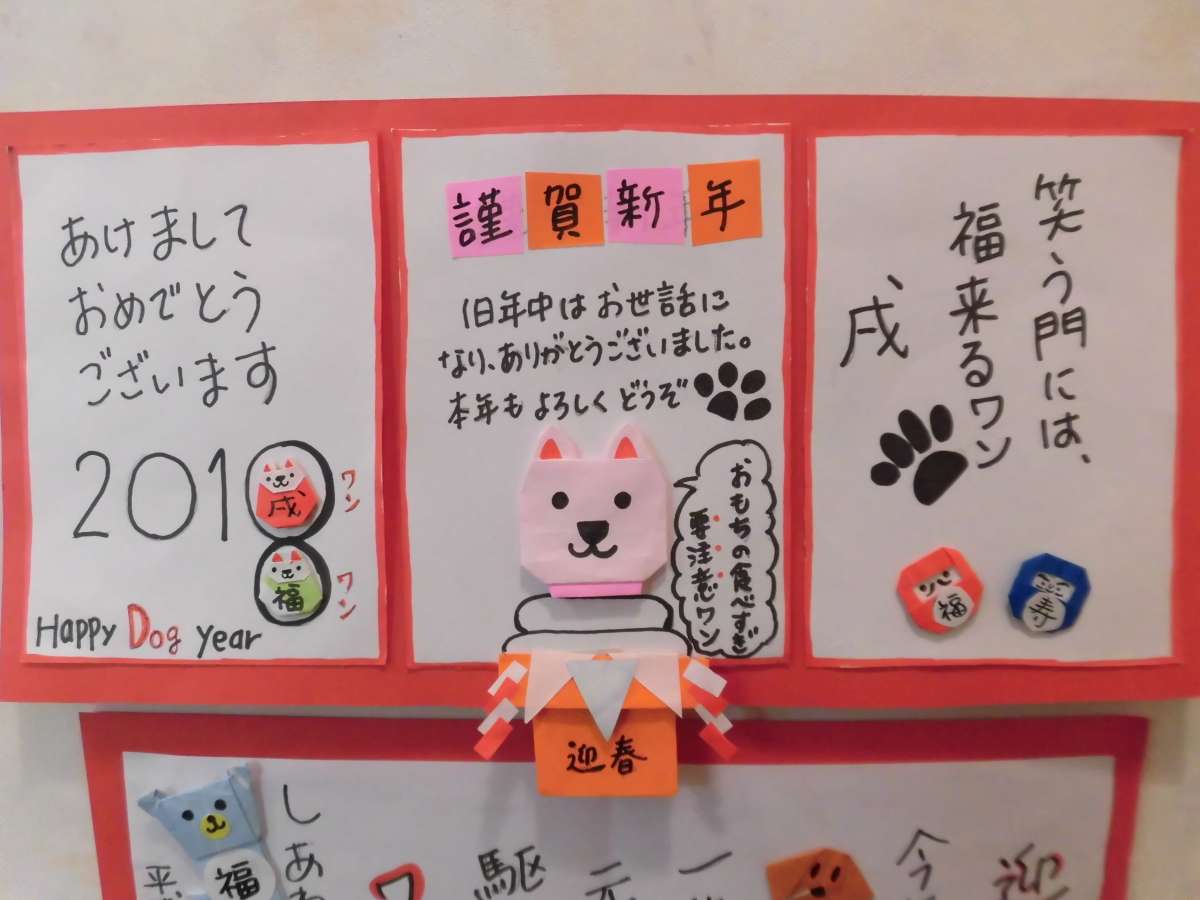 あけまして
おめでとう
ございます
2018
戌
ワン
福
ワン
Happy Dog year
謹賀新年
旧年中はお世話に
なり、ありがとうございました。
本年もよろしくどうぞ
おもちの食べすぎ
要注意ワン
迎春
笑う門には、
福来るワン
戌
福
寿
迎
今
一
元
駆
ワ
しあわ
平
福